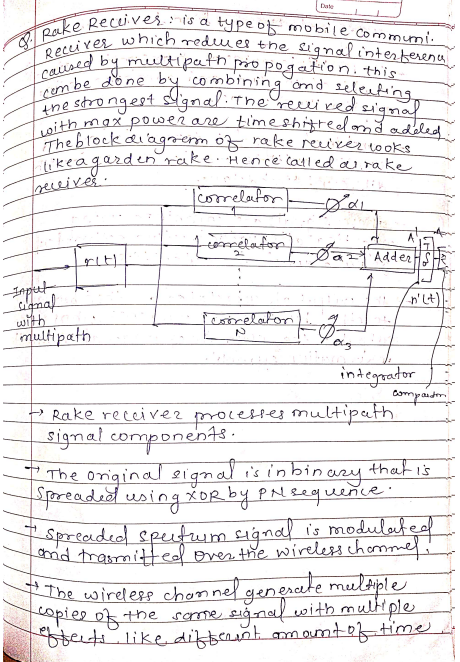 Date
Q. Rake Receiver: is a type of mobile communi.
Receiver which reduces the signal interference
caused by multipath propogation. this
can be done by combining and selecting
the strongest signal. The received signal
with max power are time shifted and added
The block diagram of rake reciver looks
like a garden rake. Hence called as rake
receiver.
correlator 1
α1
correlator 2
α2
Adder
r(t)
Input
signal
with
multipath
correlator N
α3
r'(t)
integrator
→ Rake receiver processes multipath
signal components.
→ The original signal is in binary that is
Spreaded using XOR by PN sequence.
→ Spreaded spectrum signal is modulated
and trasmitted over the wireless channel.
→ The wireless channel generate multiple
copies of the same signal with multiple
effects like different amount of time